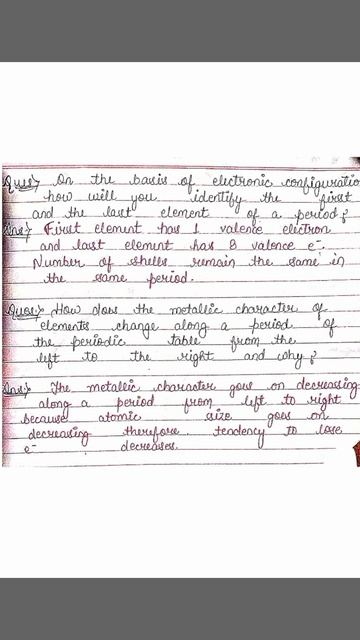 Ques:- On the basis of electronic configuratio
how will you identify the first
and the last element of a period?
Ans:- First element has 1 valence electron
and last element has 8 valence e⁻.
Number of shells remain the same in
the same period.
Ques:- How does the metallic character of
elements change along a period of
the periodic table from the
left to the right and why?
Ans:- The metallic character goes on decreasing
along a period from left to right
because atomic size goes on
decreasing therefore tendency to lose
e⁻ decreases.